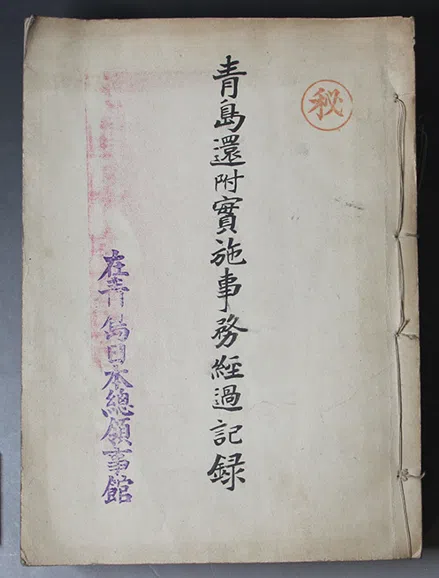 秘
青島還附實施事務經過記録
在青島日本總領事館